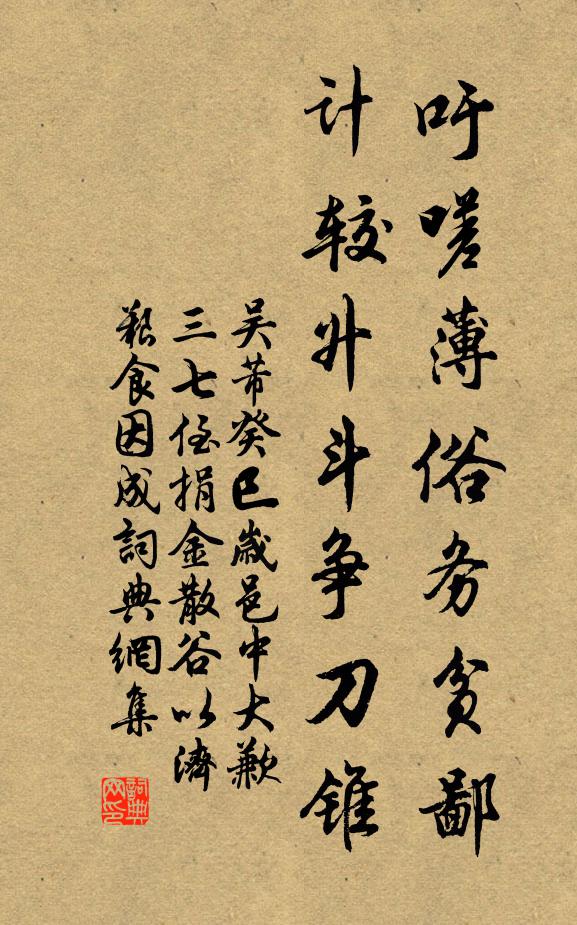 吁嗟薄俗务贪鄙
计较升斗争刀锥
吴芾癸巳歲邑中大歉
三七侄捐金散谷以濟
艰食因成詞典網集
詞典网印